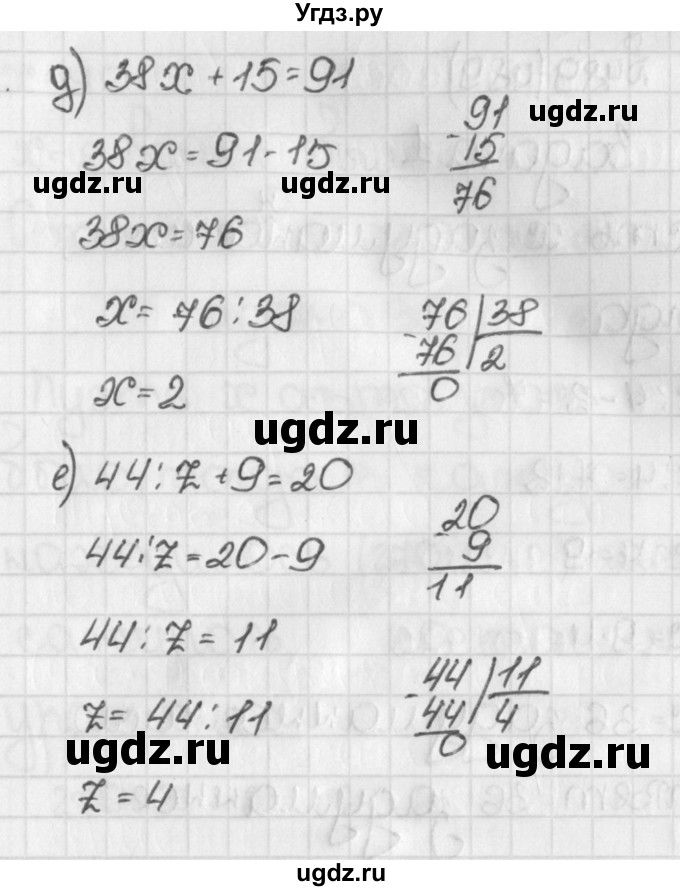 Угдз.ру
д) 38x + 15 = 91
91
- 15
76
38x = 91 - 15
ugdz.ru
ugdz.ru
ugdz.ru
38x = 76
x = 76 : 38
76 | 38
- 76 | 2
0
x = 2
ugdz.ru
е) 44 : z + 9 = 20
44 : z = 20 - 9
20
- 9
11
44 : z = 11
z = 44 : 11
- 44 | 11
44 | 4
0
ugdz.ru
ugdz.ru
z = 4
ugdz.ru